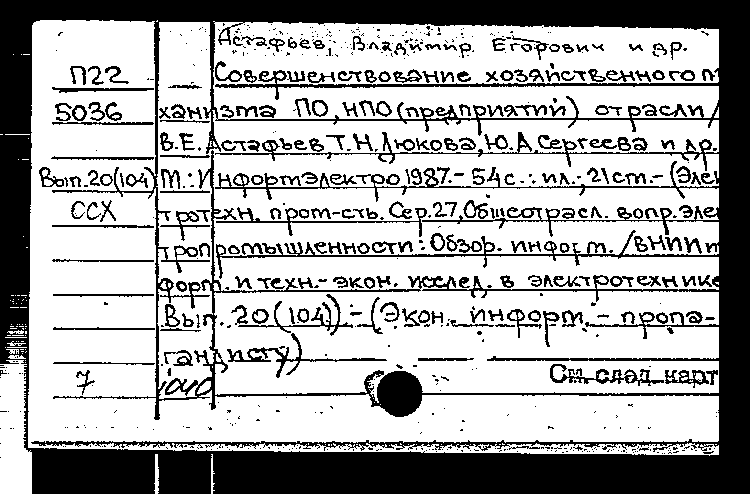 Астафьев, Владимир Егорович и др.
П22 Совершенствование хозяйственного м
5036 ханизма ПО, НПО (предприятий) отрасли /
В.Е. Астафьев, Т.Н. Дюкова, Ю.А. Сергеева и др.
Вып.20(104) М.: Информэлектро, 1987.- 54с.: ил.; 21см.- (Элек
ССХ тротехн. пром-сть. Сер.27, Общеотрасл. вопр. элек
тропромышленности: Обзор. информ. / ВНИИ
форм. и техн.-экон. исслед. в электротехнике
Вып. 20(104)).-(Экон. информ. - пропа-
гандисту)
7 См. след. карт